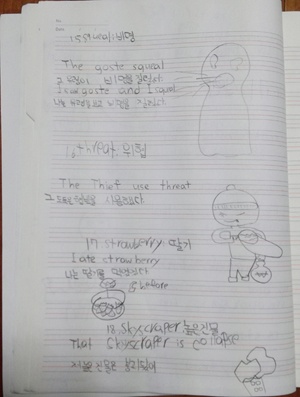 15 squeal: 비명
The goste squeal
그 유령이 비명을 질렀다
I saw goste and I squeal
나는 유령을 보고 비명을 질렀다
16 threat 위협
The Thief use threat
그 도둑은 위협을 사용했다
17 strawberry: 딸기
I ate strawberry
나는 딸기를 먹었다
18. Skyscraper 높은건물
That Skyscraper is collapse
저 높은 건물은